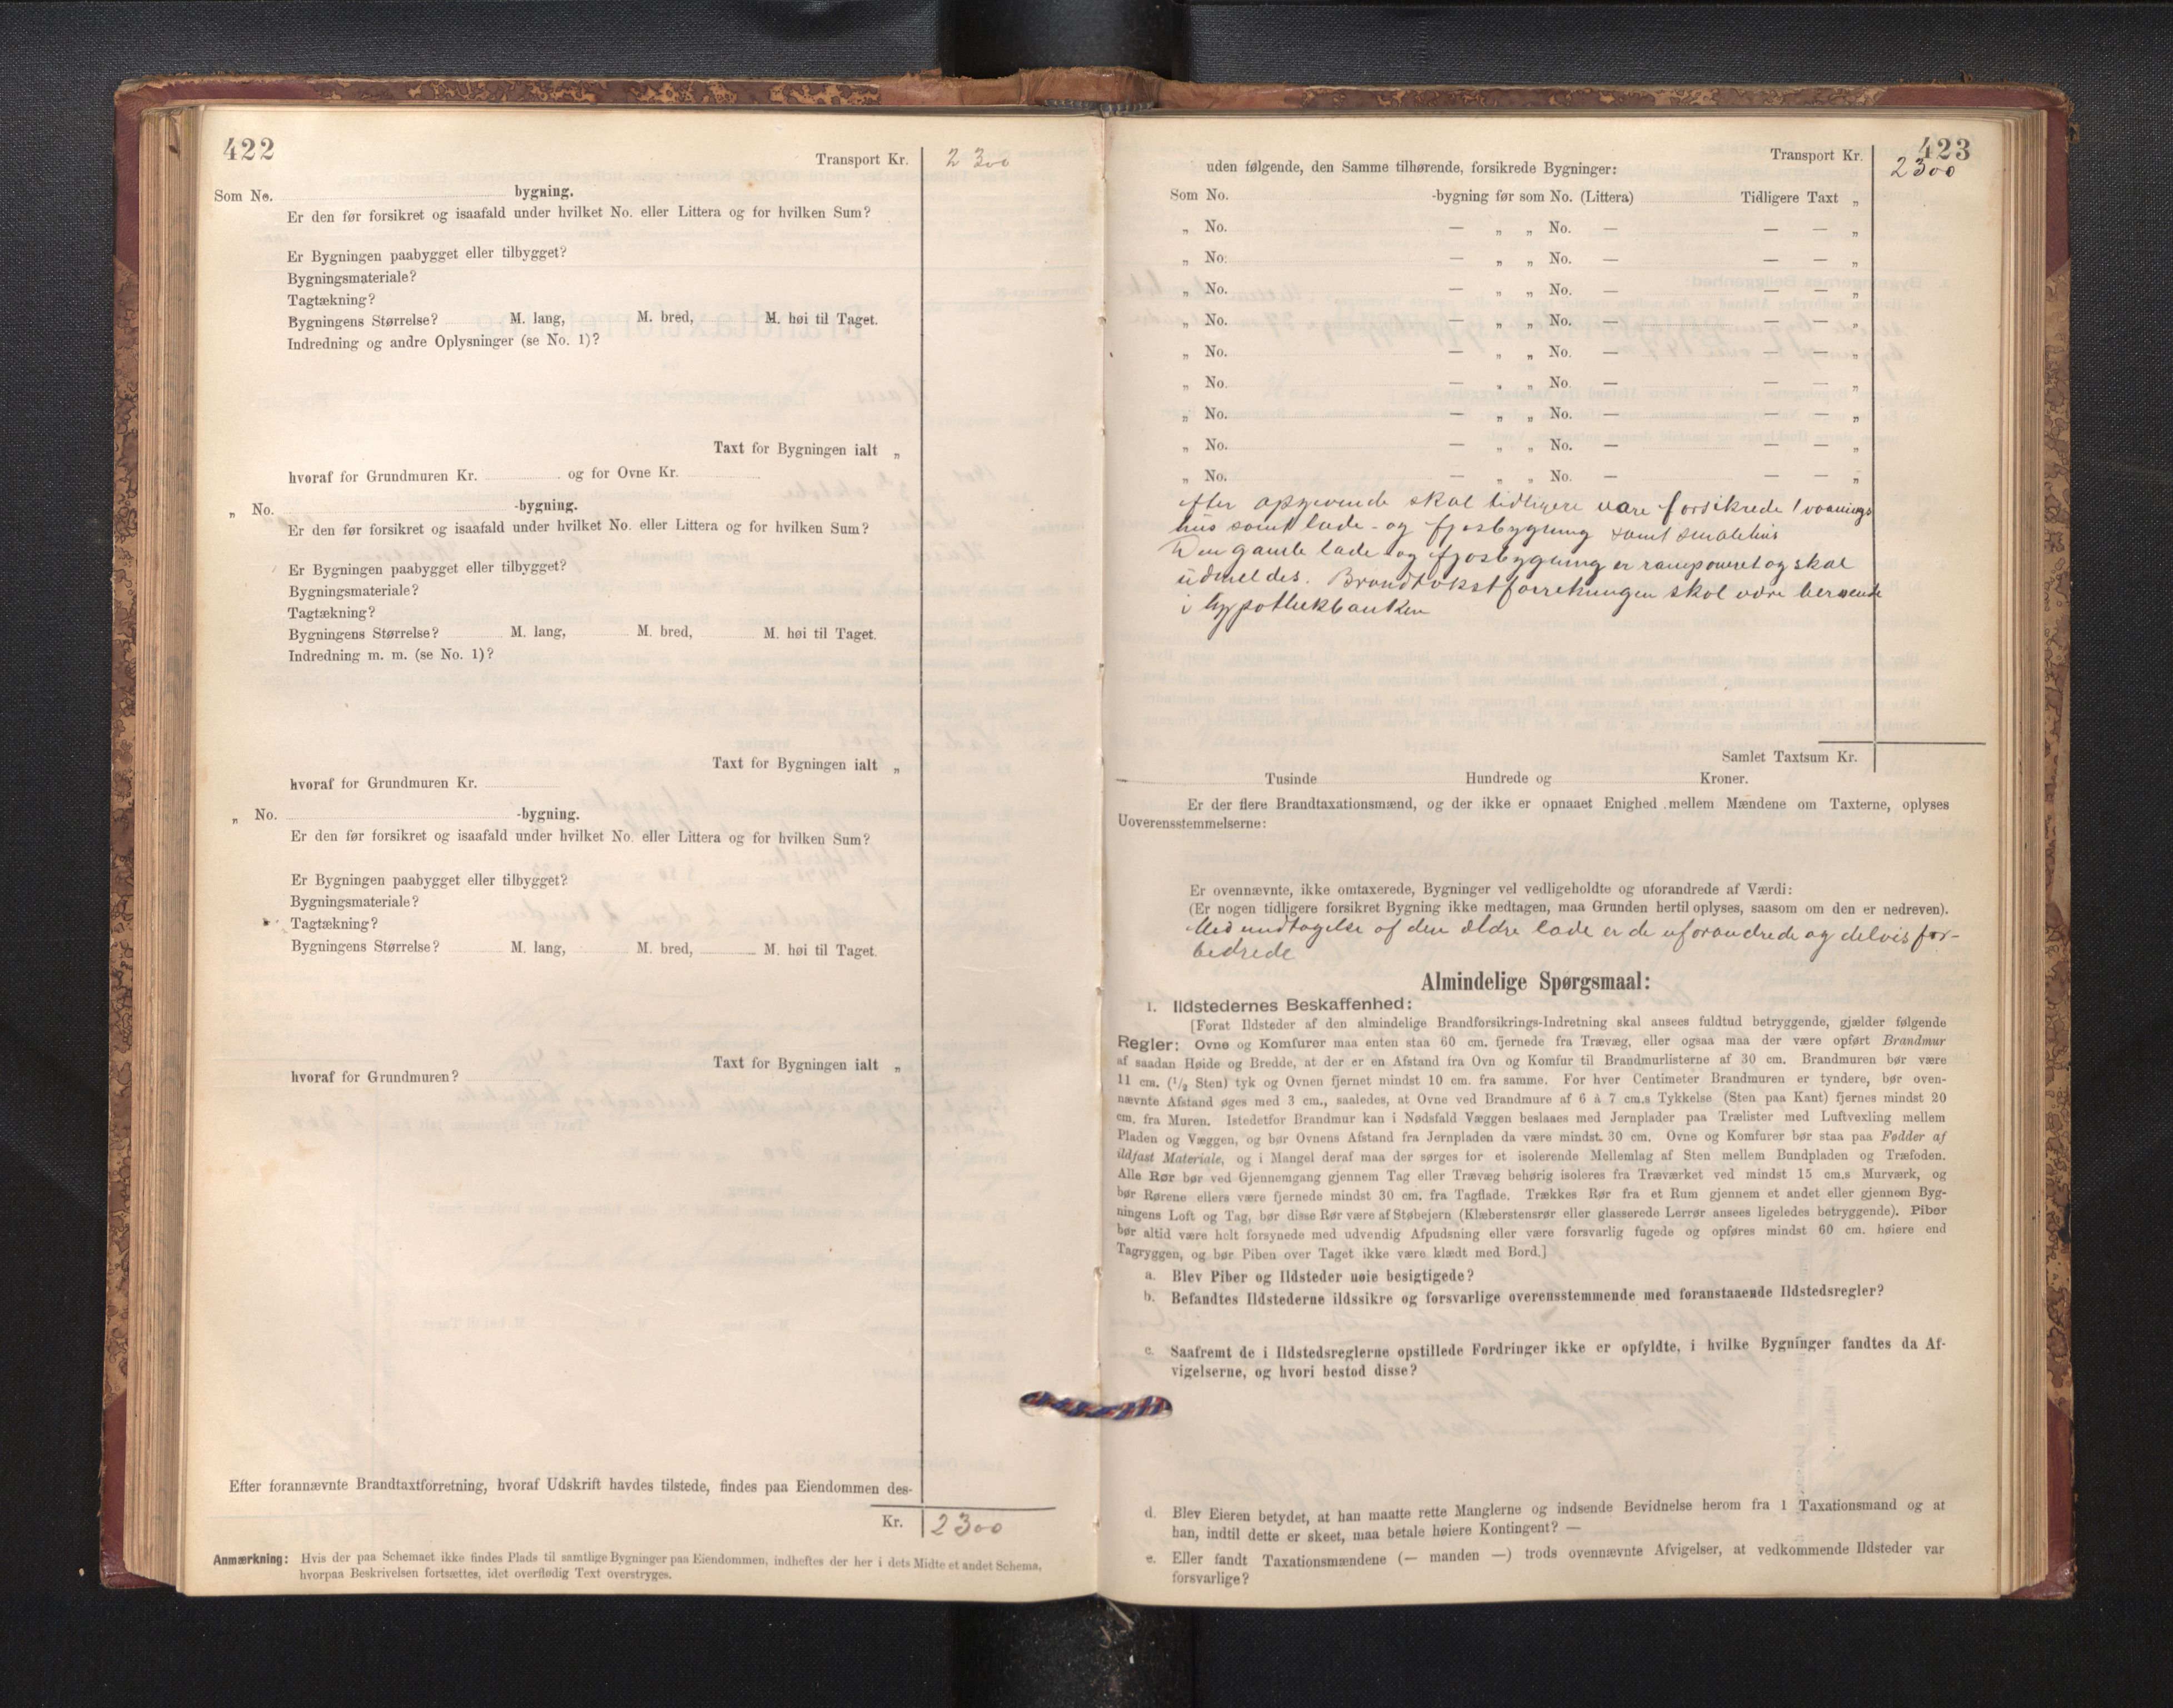 422
Transport Kr. 2300
Som No. bygning.
Er den før forsikret og isaafald under hvilket No. eller Littera og for hvilken Sum?
Er Bygningen paabygget eller tilbygget?
Bygningsmateriale?
Tagtækning?
Bygningens Størrelse? M. lang, M. bred, M. høi til Taget.
Indredning og andre Oplysninger (se No. 1)?
Taxt for Bygningen ialt „
hvoraf for Grundmuren Kr. og for Ovne Kr.
„ No. -bygning.
Er den før forsikret og isaafald under hvilket No. eller Littera og for hvilken Sum?
Er Bygningen paabygget eller tilbygget?
Bygningsmateriale?
Tagtækning?
Bygningens Størrelse? M. lang, M. bred, M. høi til Taget.
Indredning m. m. (se No. 1)?
Taxt for Bygningen ialt „
hvoraf for Grundmuren Kr.
„ No. -bygning.
Er den før forsikret og isaafald under hvilket No. eller Littera og for hvilken Sum?
Er Bygningen paabygget eller tilbygget?
Bygningsmateriale?
Tagtækning?
Bygningens Størrelse? M. lang, M. bred, M. høi til Taget.
Taxt for Bygningen ialt „
hvoraf for Grundmuren?
Efter forannævnte Brandtaxtforretning, hvoraf Udskrift havdes tilstede, findes paa Eiendommen des-
Kr. 2300
Anmærkning: Hvis der paa Schemaet ikke findes Plads til samtlige Bygninger paa Eiendommen, indheftes der her i dets Midte et andet Schema,
hvorpaa Beskrivelsen fortsættes, idet overflødig Text overstryges.
423
Transport Kr. 2300
uden følgende, den Samme tilhørende, forsikrede Bygninger:
Som No. -bygning før som No. (Littera) Tidligere Taxt „
„ No. — „ „ No. — — — „
„ No. — „ „ No. — — — „
„ No. — „ „ No. — — — „
„ No. — „ „ No. — — — „
„ No. — „ „ No. — — — „
„ No. — „ „ No. — — — „
„ No. — „ „ No. — — — „
„ No. — „ „ No. — — — „
„ No. — „ „ No. — — — „
efter opgivende skal tidligere være forsikrede 1 vaanings
hus samt lade- og fjosbygning samt smalehus
Den gamle lade- og fjosbygning er ramponeret og skal
udmeldes. Brandtakstforretningen skal være beroende
i hypothekbanken
Samlet Taxtsum Kr.
— Tusinde Hundrede og Kroner.
Er der flere Brandtaxationsmænd, og der ikke er opnaaet Enighed mellem Mændene om Taxterne, oplyses
Uoverensstemmelserne:
Er ovennævnte, ikke omtaxerede, Bygninger vel vedligeholdte og uforandrede af Værdi:
(Er nogen tidligere forsikret Bygning ikke medtagen, maa Grunden hertil oplyses, saasom om den er nedreven).
Med undtagelse af den ældre lade er de uforandrede og delvis for-
bedrede
Almindelige Spørgsmaal:
1. Ildstedernes Beskaffenhed:
[Forat Ildsteder af den almindelige Brandforsikrings-Indretning skal ansees fuldtud betryggende, gjælder følgende
Regler: Ovne og Komfurer maa enten staa 60 cm. fjernede fra Trævæg, eller ogsaa maa der være opført Brandmur
af saadan Høide og Bredde, at der er en Afstand fra Ovn og Komfur til Brandmurlisterne af 30 cm. Brandmuren bør være
11 cm. (1/2 Sten) tyk og Ovnen fjernet mindst 10 cm. fra samme. For hver Centimeter Brandmuren er tyndere, bør oven-
nævnte Afstand øges med 3 cm., saaledes, at Ovne ved Brandmure af 6 à 7 cm.s Tykkelse (Sten paa Kant) fjernes mindst 20
cm. fra Muren. Istedetfor Brandmur kan i Nødsfald Væggen beslaaes med Jernplader paa Trælister med Luftvexling mellem
Pladen og Væggen, og bør Ovnens Afstand fra Jernpladen da være mindst 30 cm. Ovne og Komfurer bør staa paa Fødder af
ildfast Materiale, og i Mangel deraf maa der sørges for et isolerende Mellemlag af Sten mellem Bundpladen og Træfoden.
Alle Rør bør ved Gjennemgang gjennem Tag eller Trævæg behørig isoleres fra Træværket ved mindst 15 cm.s Murværk, og
bør Rørene ellers være fjernede mindst 30 cm. fra Tagflade. Trækkes Rør fra et Rum gjennem et andet eller gjennem Byg-
ningens Loft og Tag, bør disse Rør være af Støbejern (Klæberstensrør eller glasserede Lerrør ansees ligeledes betryggende). Piber
bør altid være helt forsynede med udvendig Afpudsning eller være forsvarlig fugede og opføres mindst 60 cm. høiere end
Tagryggen, og bør Piben over Taget ikke være klædt med Bord.]
a. Blev Piber og Ildsteder nøie besigtigede?
b. Befandtes Ildstederne ildssikre og forsvarlige overensstemmende med foranstaaende Ildstedsregler?
c. Saafremt de i Ildstedsreglerne opstillede Fordringer ikke er opfyldte, i hvilke Bygninger fandtes da Af-
vigelserne, og hvori bestod disse?
d. Blev Eieren betydet, at han maatte rette Manglerne og indsende Bevidnelse herom fra 1 Taxationsmand og at
han, indtil dette er skeet, maa betale høiere Kontingent? —
e. Eller fandt Taxationsmændene (— manden —) trods ovennævnte Afvigelser, at vedkommende Ildsteder var
forsvarlige?